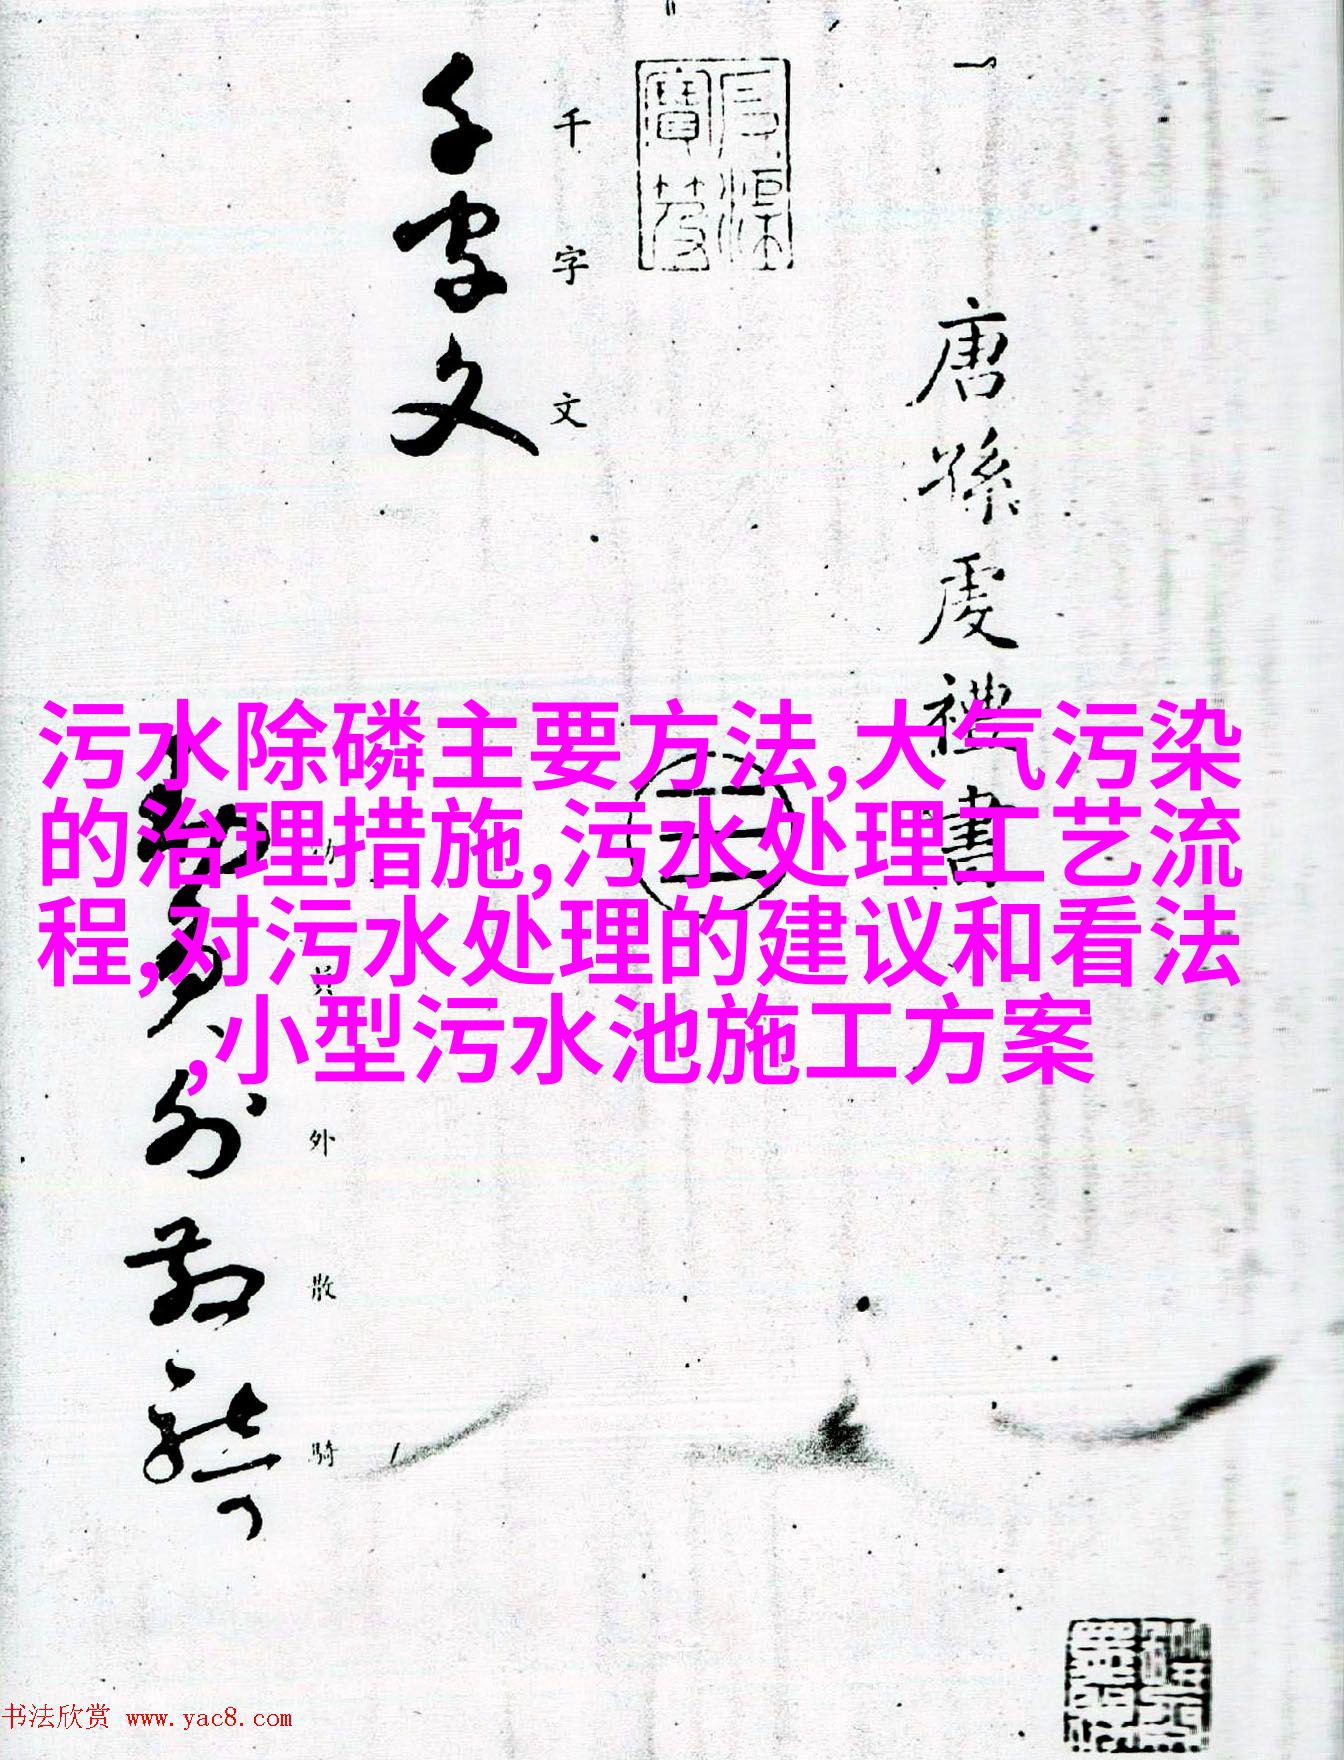 唐孫虔禮書
千字文
千字文
污水除磷主要方法,大气污染
的治理措施,污水处理工艺流
程,对污水处理的建议和看法
,小型污水池施工方案
外散騎
外散騎
书法欣赏 www.yac8.com